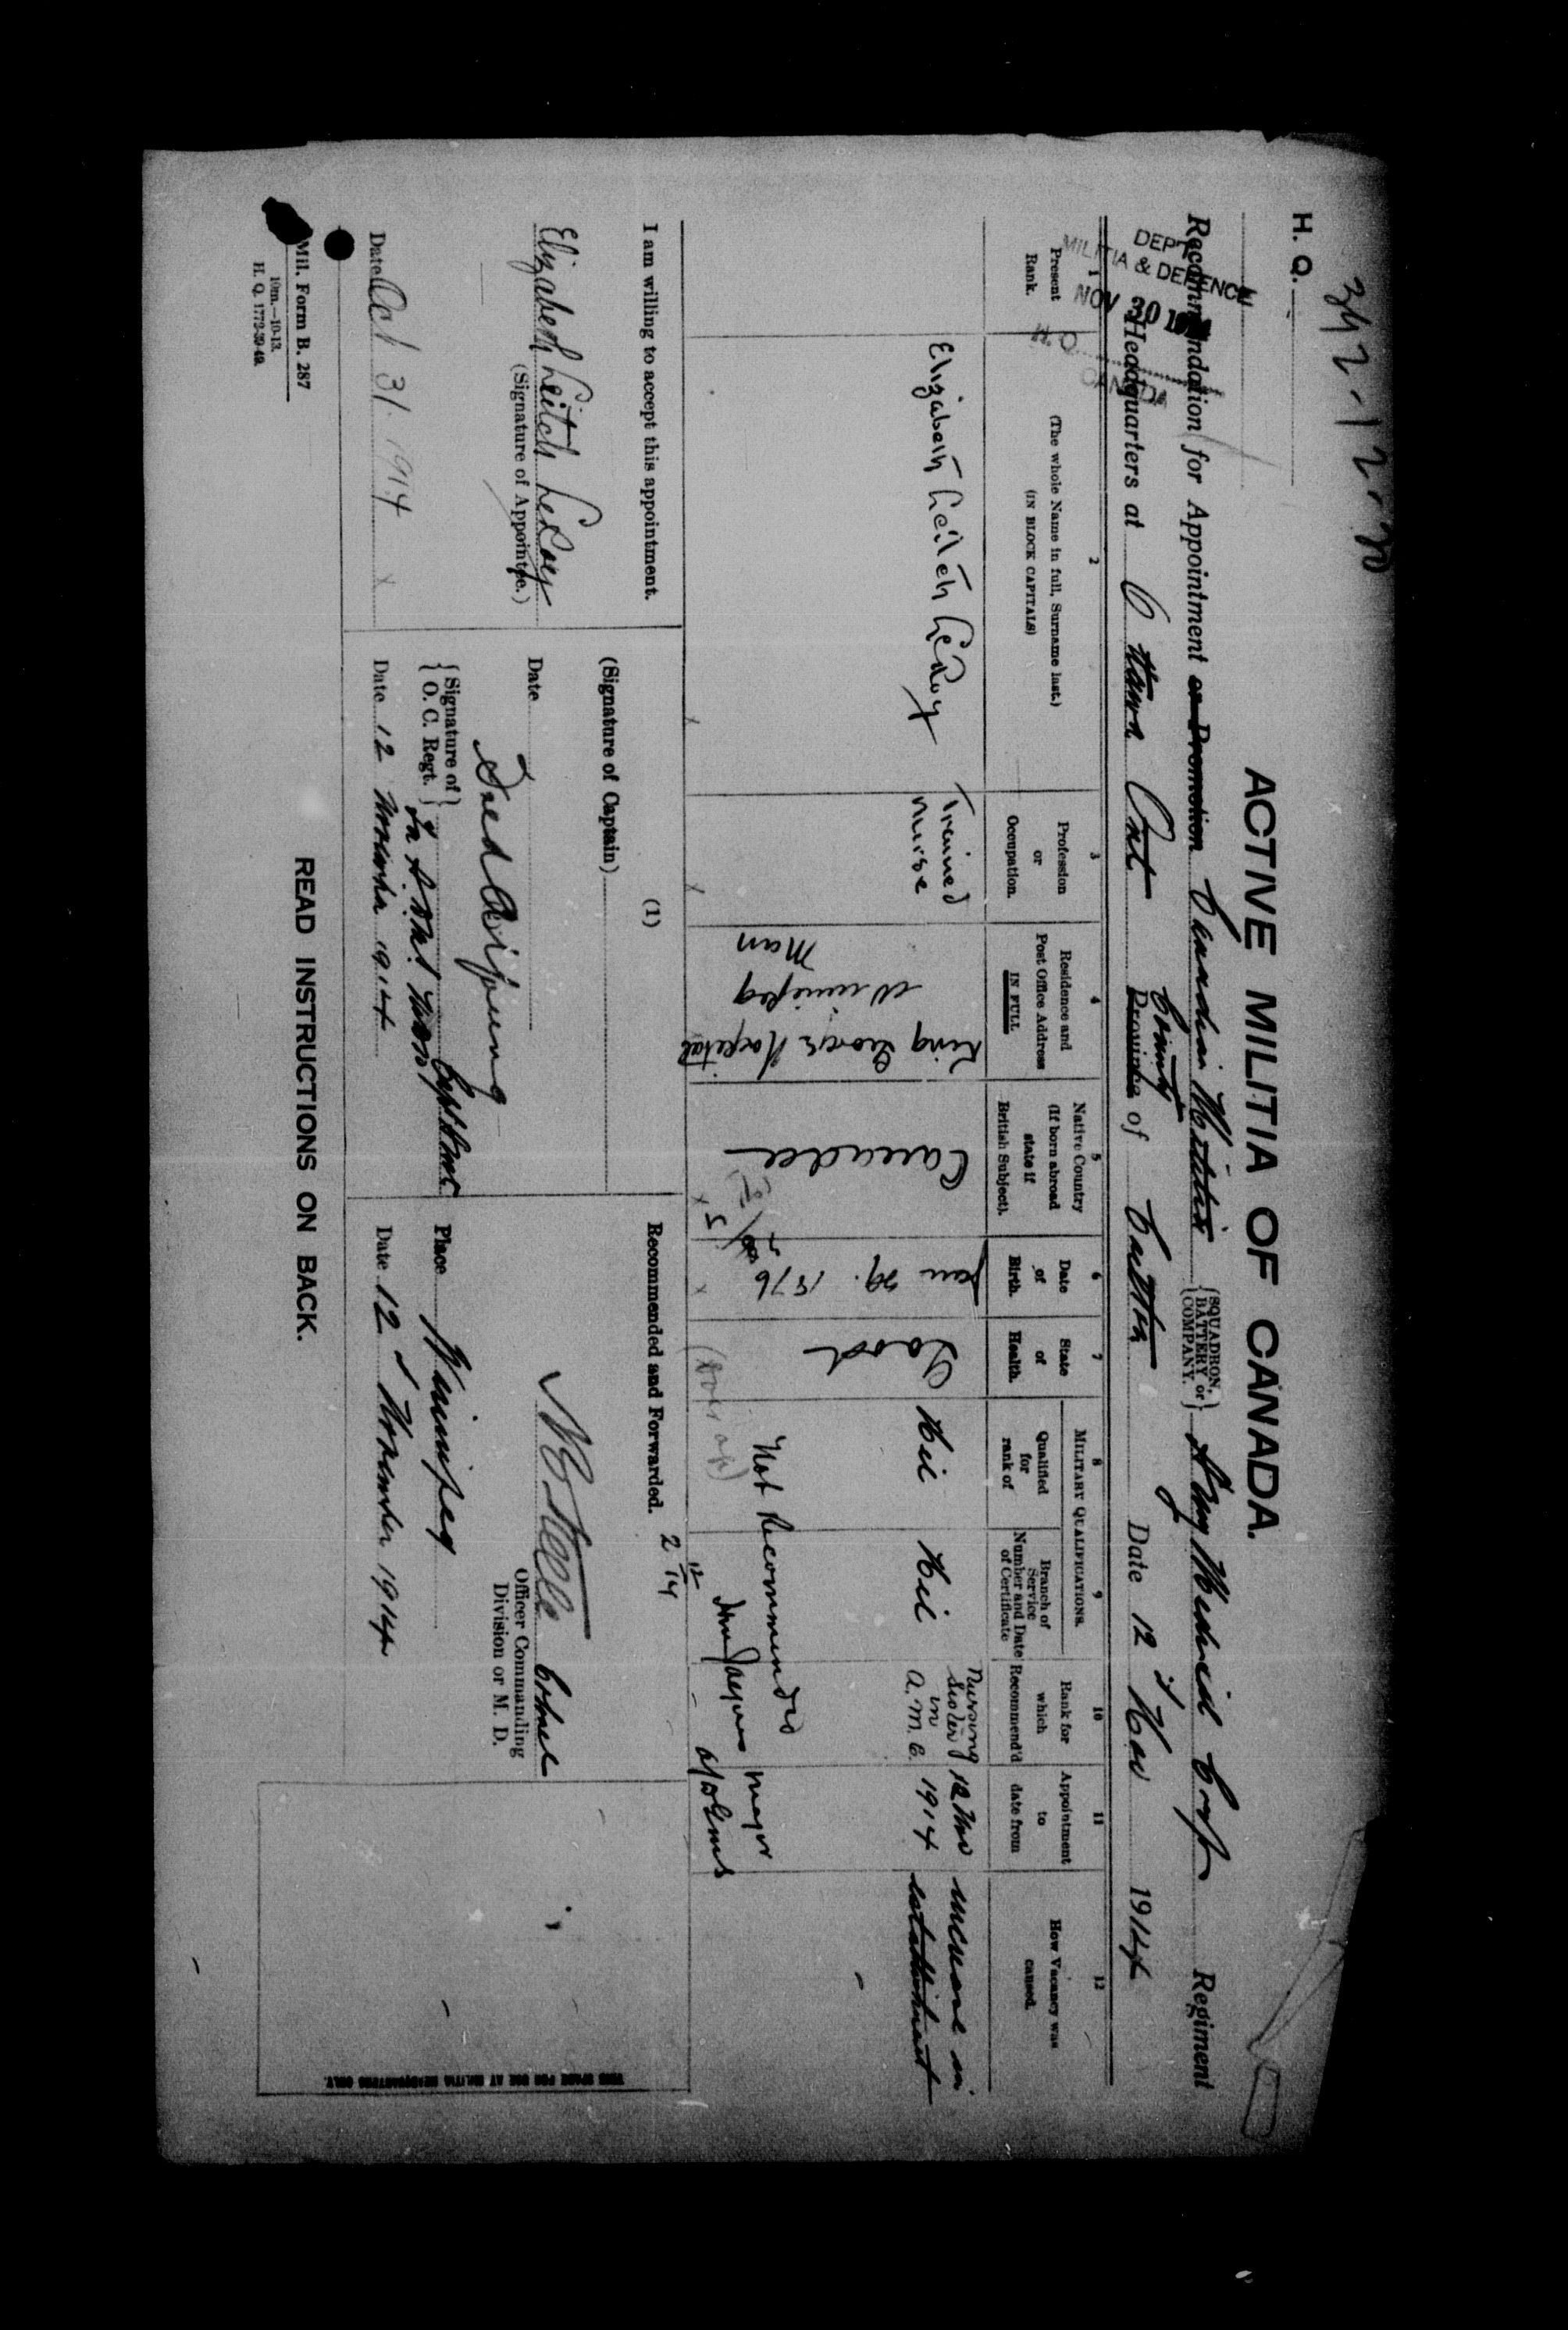 342-12-20
H. Q.
ACTIVE MILITIA OF CANADA.
Recommendation for Appointment or Promotion Canadian Militia {SQUADRON, BATTERY or COMPANY.} Army Medical Corps Regiment
DEPT.
MILITIA & DEFENCE
NOV 30 1914
H. Q.
CANADA
Headquarters at Ottawa Ont County Province of Carleton Date 12th Nov 1914
1
Present
Rank.
2
(The whole Name in full, Surname last.)
(IN BLOCK CAPITALS)
3
Profession
or
Occupation.
4
Residence and
Post Office Address
IN FULL
5
Native Country
(If born abroad
state if
British Subject).
6
Date
of
Birth.
7
State
of
Health.
MILITARY QUALIFICATIONS.
8
Qualified
for
rank of
9
Branch of
Service
Number and Date
of Certificate
10
Rank for
which
Recommend'd
11
Appointment
to
date from
12
How Vacancy was
caused.
Elizabeth Leitch LeRoy
Trained
Nurse
King George Hospital
Winnipeg
Man
Canada
Jan 29. 1876
Good
Nil
Nil
Nursing
Sister
in
A.M.C.
12 Nov
1914
increase in
establishment
Not Recommended
Jacques Major
2/12/14
I am willing to accept this appointment.
Elizabeth Leitch LeRoy
(Signature of Appointee.)
Date Oct 31 1914
(1)
(Signature of Captain)
Date
{Signature of O. C. Regt.}
Date 12 November 1914
Recommended and Forwarded.
Colonel
Officer Commanding
Division or M. D.
Place Winnipeg
Date 12th November 1914
THIS SPACE FOR USE AT MILITIA HEADQUARTERS ONLY.
Mil. Form B. 287
10m.—10-13.
H. Q. 1772-39-40.
READ INSTRUCTIONS ON BACK.